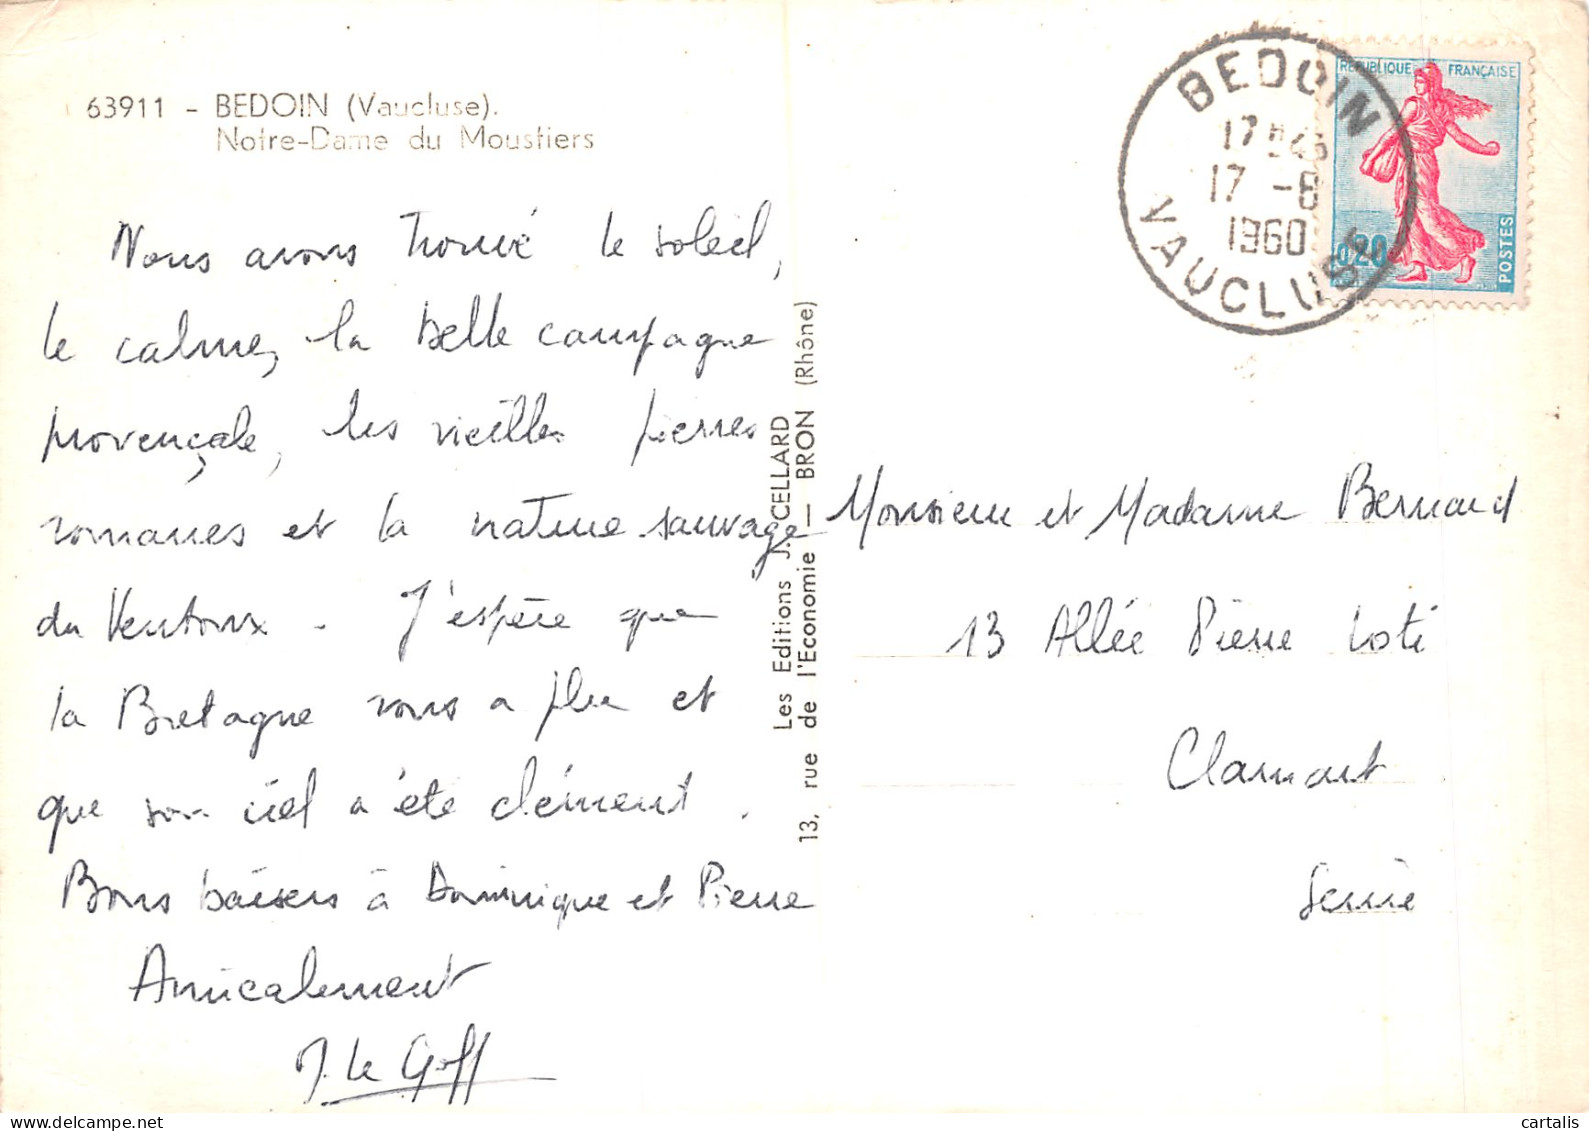 63911 - BEDOIN (Vaucluse).
Notre-Dame du Moustiers
Nous avons trouvé le soleil,
le calme, la belle campagne
provençale, les vieilles pierres
romanes et la nature sauvage
du Ventoux. J'espère que
la Bretagne vous a plu et
que son ciel a été clément.
Bons baisers à Dominique et Pierre
Amicalement
J. Le Goff
Les Editions J. CELLARD
13, rue de l'Economie — BRON (Rhône)
BEDOIN
17 -8
1960
VAUCLUSE
REPUBLIQUE FRANÇAISE
0,20
POSTES
Monsieur et Madame Bernard
13 Allée Pierre Loti
Clamart
Seine
cartalis